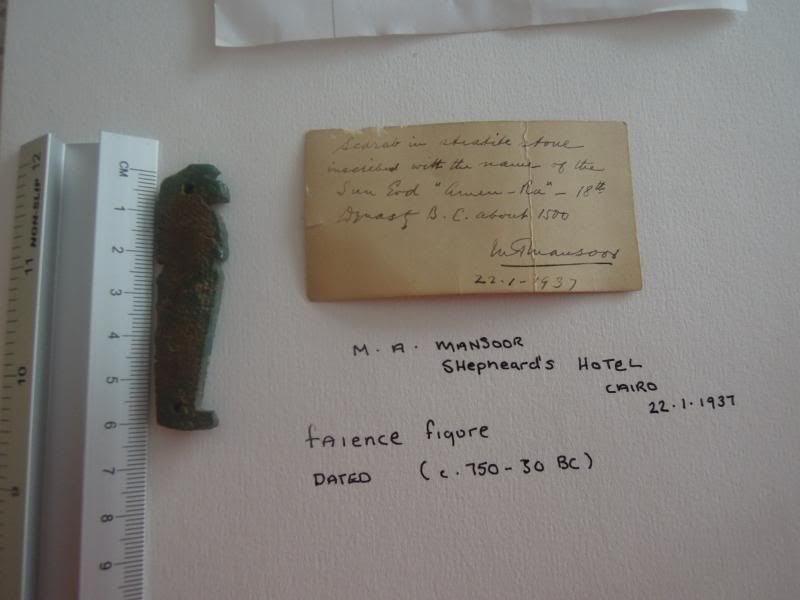 Scarab in steatite stone
inscribed with the name of the
Sun God "Amen-Ra" - 18th
Dynasty B.C. about 1500
M A Mansoor
22.1-1937
M. A. MANSOOR
SHEPHEARD'S HOTEL
CAIRO
22.1.1937
FAIENCE figure
DATED (c. 750-30 BC)
CM
1
2
3
4
5
6
7
8
9
12
NON-SLIP
11
10
9